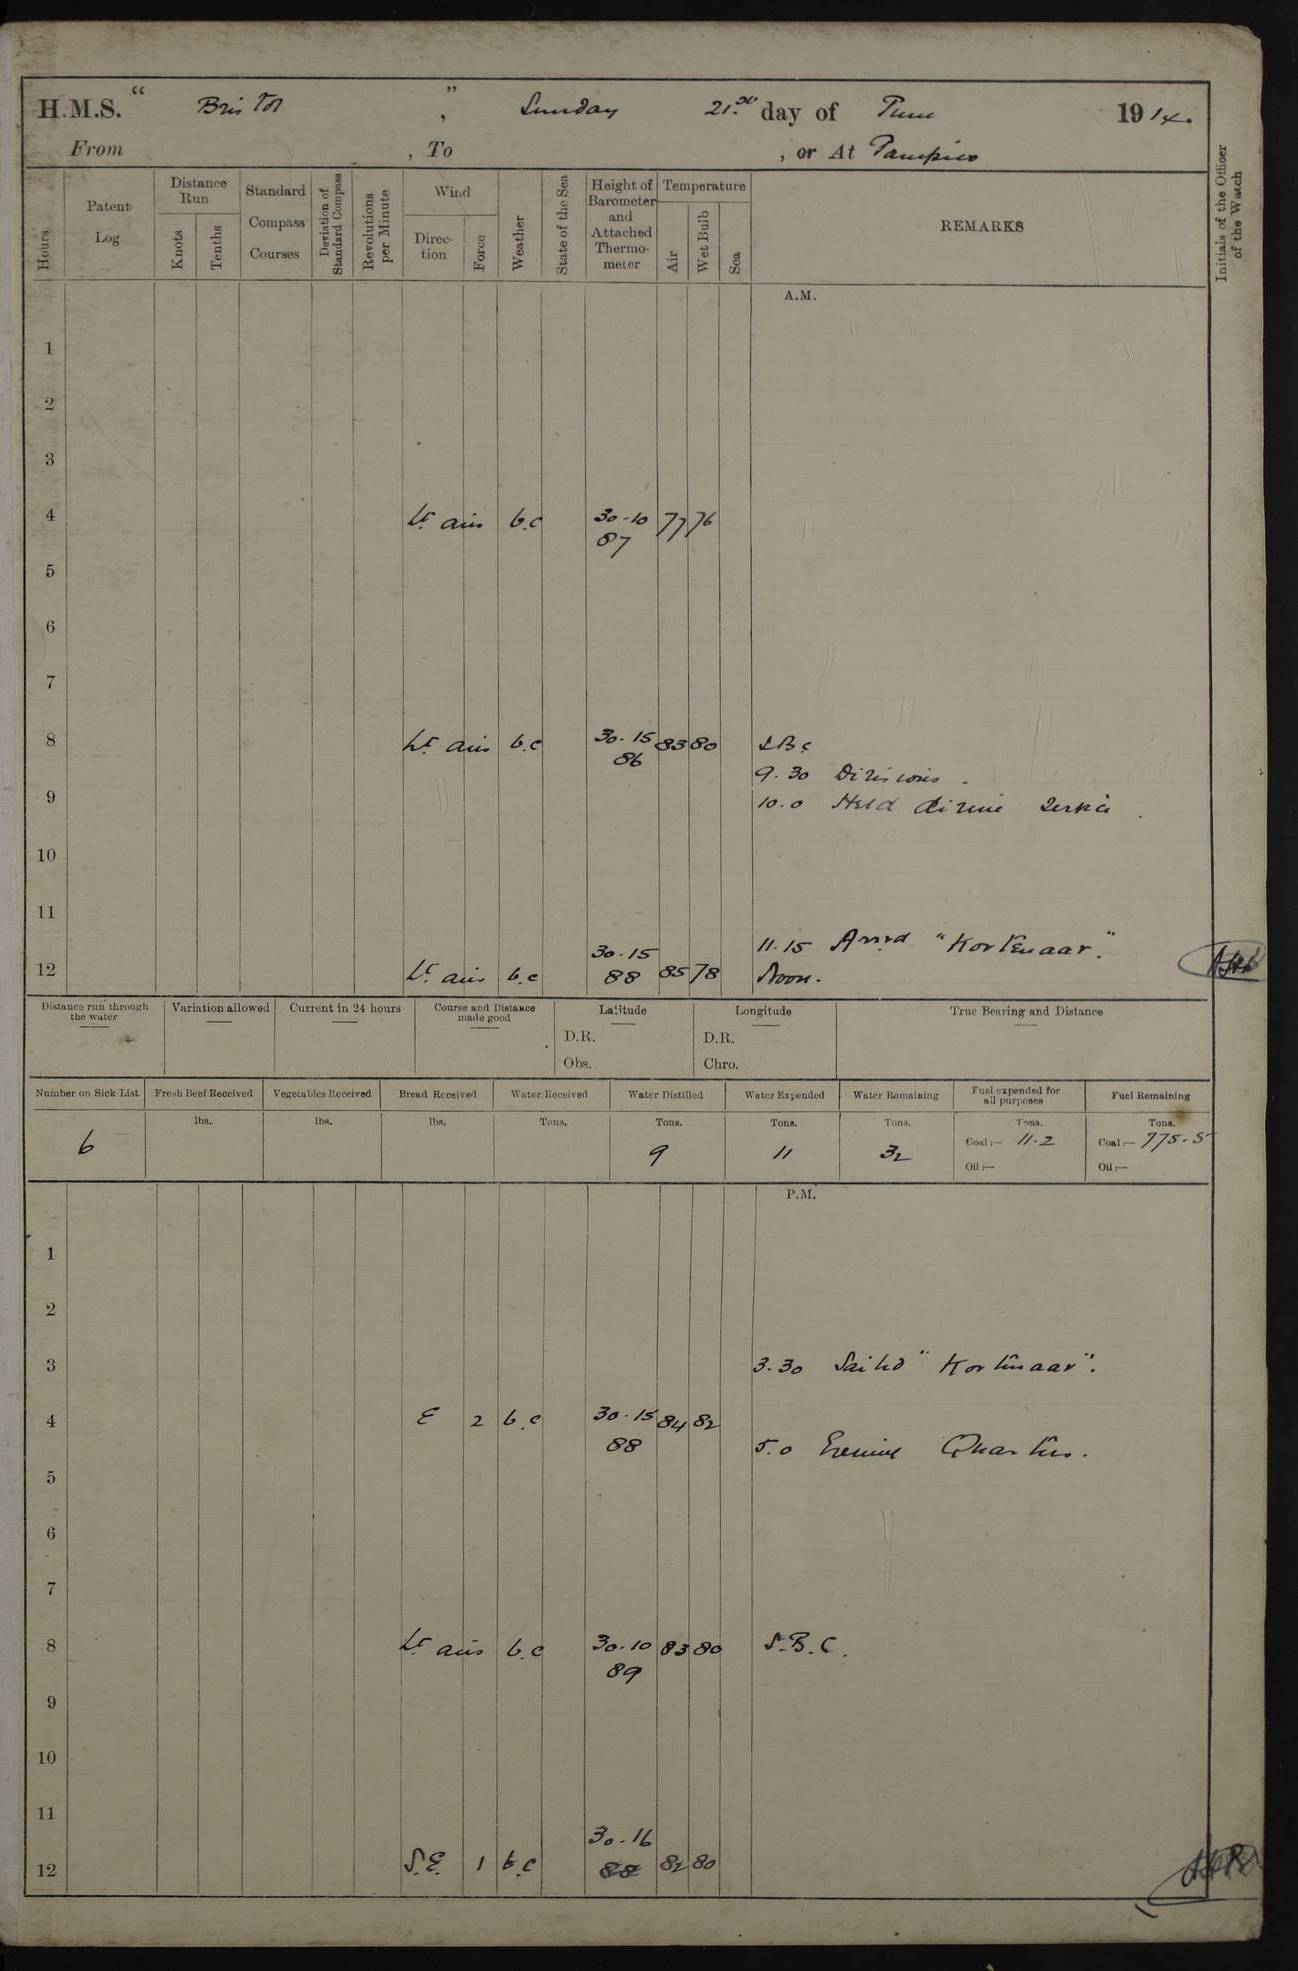 H.M.S. “ Bristol ”, Sunday 21st day of June 1914.
From , To , or At Tampico
Hours
Patent Log
Distance Run
Knots
Tenths
Standard Compass Courses
Deviation of Standard Compass
Revolutions per Minute
Wind
Direction
Force
Weather
State of the Sea
Height of Barometer and Attached Thermometer
Temperature
Air
Wet Bulb
Sea
REMARKS
Initials of the Officer of the Watch
A.M.
1
2
3
4 Lt airs b.c 30.10 77 76
87
5
6
7
8 Lt airs b.c 30.15 83 80 S B C
86
9.30 Divisions.
9 10.0 Held divine service.
10
11
11.15 Arrd "Kortenaar".
30.15
12 Lt airs b.c 88 85 78 Noon.
Distance run through the water
Variation allowed
Current in 24 hours
Course and Distance made good
Latitude
D.R.
Obs.
Longitude
D.R.
Chro.
True Bearing and Distance
Number on Sick List
6
Fresh Beef Received
lbs.
Vegetables Received
lbs.
Bread Received
lbs.
Water Received
Tons.
Water Distilled
Tons.
9
Water Expended
Tons.
11
Water Remaining
Tons.
32
Fuel expended for all purposes
Tons.
Coal:— 11.2
Oil:—
Fuel Remaining
Tons.
Coal:— 775.5
Oil:—
P.M.
1
2
3 3.30 Sailed "Kortenaar".
4 E 2 b.c 30.15 84 82
88 5.0 Evening Quarters.
5
6
7
8 Lt airs b.c 30.10 83 80 S.B.C.
89
9
10
11
30.16
12 S.E. 1 b.c 88 82 80